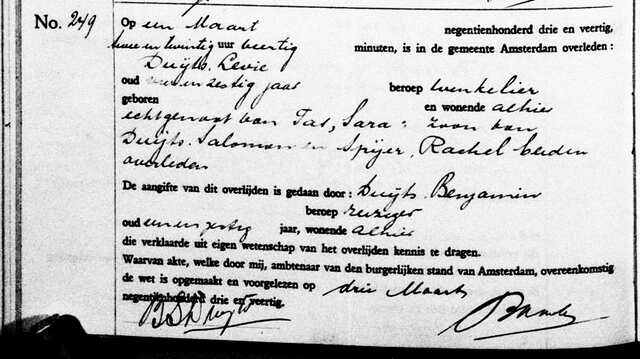 No. 249
Op een Maart negentienhonderd drie en veertig,
twee en twintig uur veertig minuten, is in de gemeente Amsterdam overleden:
Duijts. Levie
oud en zestig jaar beroep winkelier
geboren en wonende alhier
echtgenoot van Tas, Sara: zoon van
Duijts. Salomon en Spijer, Rachel beiden
overleden
De aangifte van dit overlijden is gedaan door: Duijts. Benjamin
beroep reiziger
oud jaar, wonende alhier
die verklaarde uit eigen wetenschap van het overlijden kennis te dragen.
Waarvan akte, welke door mij, ambtenaar van den burgerlijken stand van Amsterdam, overeenkomstig
de wet is opgemaakt en voorgelezen op drie Maart
negentienhonderd drie en veertig.